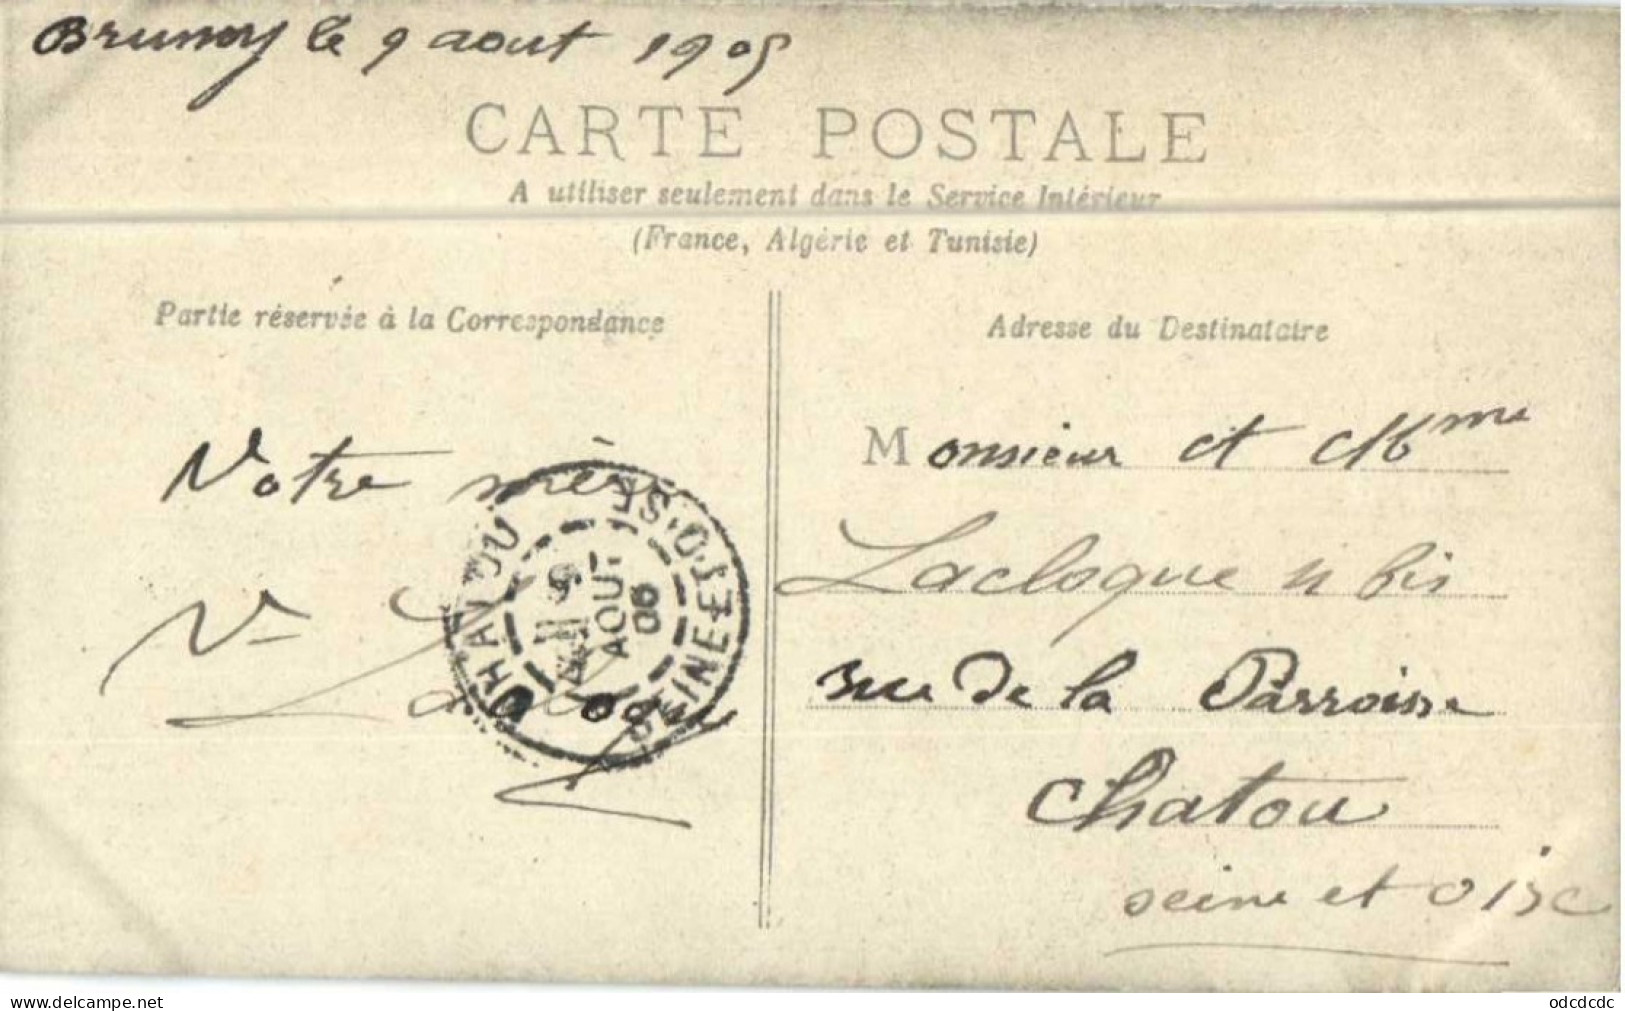 Brunoy le 9 aout 1905
CARTE POSTALE
A utiliser seulement dans le Service Intérieur
(France, Algérie et Tunisie)
Partie réservée à la Correspondance
Adresse du Destinataire
Votre mère
Vᵉ Laclogue
CHATOU Sᴺᴱ-ET-OISE
9
AOUT
Monsieur et Mᵐᵉ
Laclogue 11 bis
rue de la Parroisse
Chatou
seine et oise
delcampe.net
odcdcdc